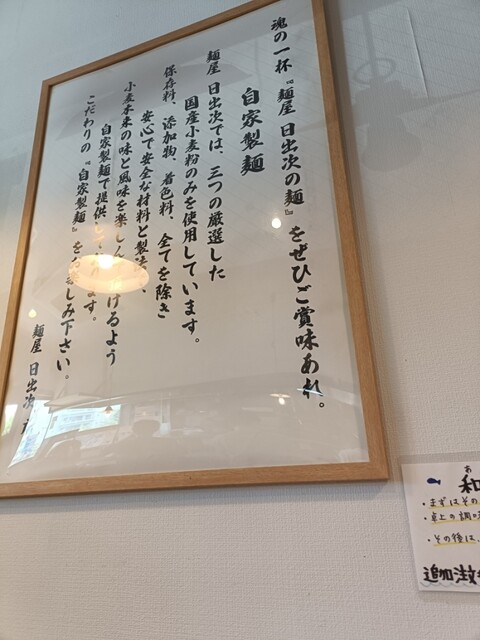 魂の一杯『麺屋 日出次の麺』をぜひご賞味あれ。
自家製麺
麺屋 日出次では、三つの厳選した
国産小麦粉のみを使用しています。
保存料、添加物、着色料、全てを除き
安心で安全な材料と製法
小麦本来の味と風味を楽しん けるよう
自家製麺で提供 ます。
こだわりの『自家製麺』を 楽しみ下さい。
麺屋 日出次
お
和
・まずはその
・卓上の調味
・その後は、
追加注文